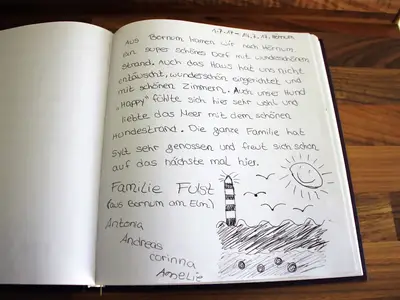 1.7.17 - 14.7.17, Hörnum
Aus Bornum kamen wir nach Hörnum
ein super schönes Dorf mit wunderschönem
Strand. Auch das Haus hat uns nicht
entäuscht, wunderschön eingerichtet und
mit schönen Zimmern. Auch unser Hund
"Happy" fühlte sich hier sehr wohl und
liebte das Meer mit dem schönen
Hundestrand. Die ganze Familie hat
Sylt sehr genossen und freut sich schon
auf das nächste mal hier.
Familie Fulst
(aus Bornum am Elm)
Antonia
Andreas
Corinna
Amelie